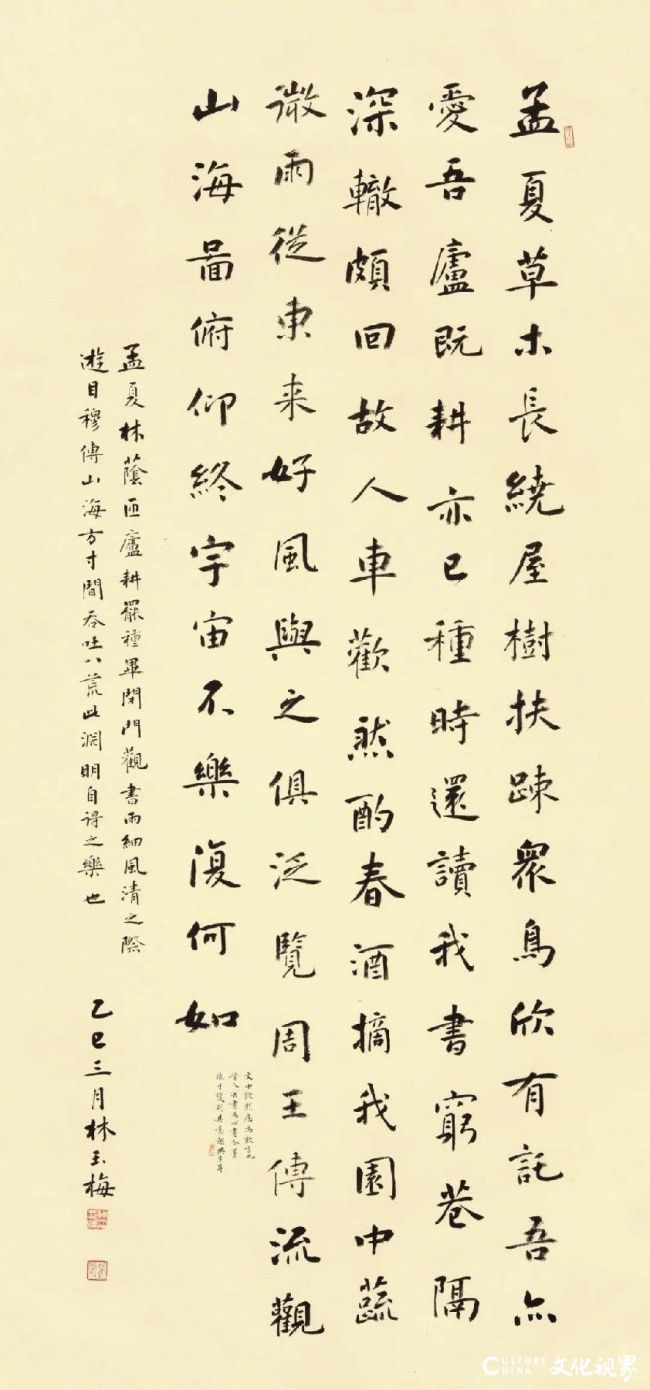 孟夏草木長繞屋樹扶踈衆鳥欣有託吾亦
愛吾廬既耕亦已種時還讀我書窮巷隔
深轍頗回故人車歡然酌春酒摘我園中蔬
微雨從東来好風與之俱泛覽周王傳流觀
山海啚俯仰終宇宙不樂復何如
文中歡然應為歡言也
孟夏林蔭匝廬耕罷種畢閉門觀書雨細風清之際
遊目穆傳山海方寸間吞吐八荒此淵明自得之樂也
乙巳三月林玉梅
CULTURE CHINA 文化视界